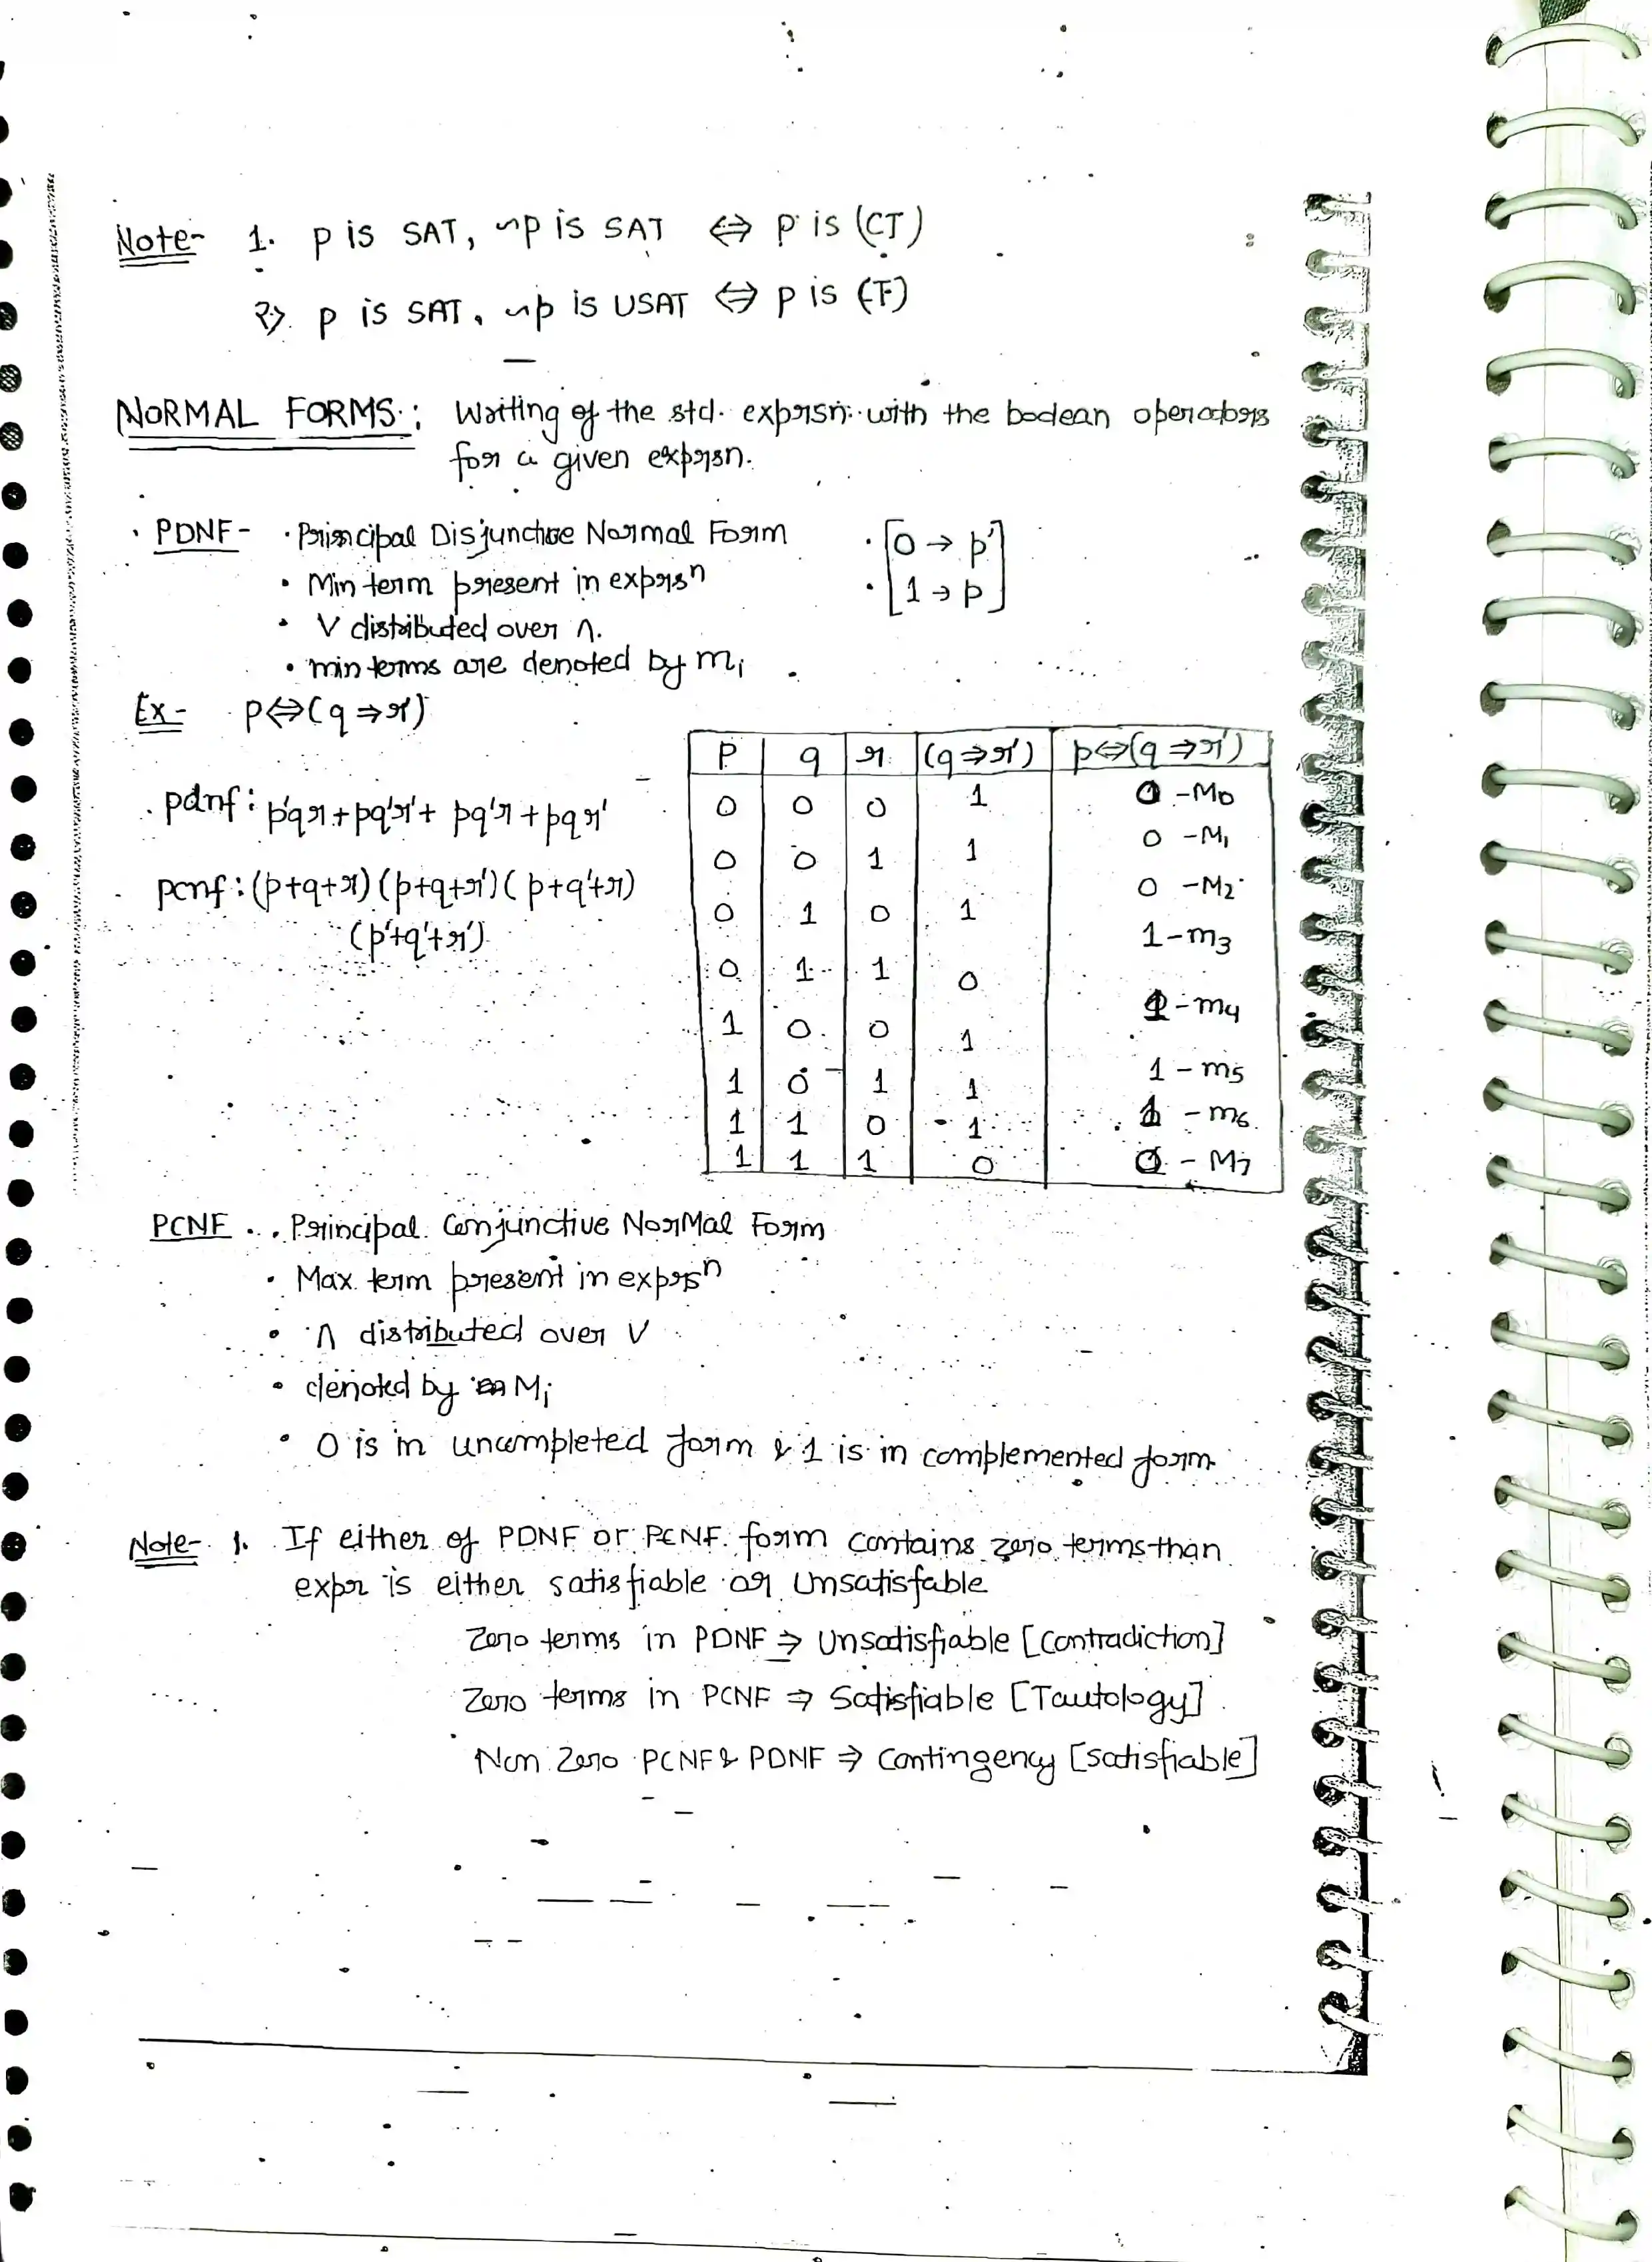 Note- 1. p is SAT, ~p is SAT ⇔ p is (CT)
2). p is SAT, ~p is USAT ⇔ p is (T)
NORMAL FORMS: Writting of the std. exprsn. with the boolean operators
for a given exprsn.
PDNF- · Principal Disjunctive Normal Form · [0 → p']
• Min term present in exprsⁿ • [1 → p]
• V distributed over Λ.
• min terms are denoted by mᵢ
Ex- p⇔(q⇒r')
p | q | r | (q⇒r') | p⇔(q⇒r')
pdnf: p'qr + pq'r' + pq'r + pqr'
pcnf: (p+q+r) (p+q+r') (p+q'+r)
(p'+q'+r')
0 0 0 1 0 - M₀
0 0 1 1 0 - M₁
0 1 0 1 0 - M₂
0 1 1 0 1 - m₃
1 0 0 1 1 - m₄
1 0 1 1 1 - m₅
1 1 0 1 1 - m₆
1 1 1 0 0 - M₇
PCNF . . Principal Conjunctive NorMal Form
• Max. term present in exprsⁿ
• Λ distributed over V
• denoted by Mᵢ
• 0 is in uncompleted form & 1 is in complemented form
Note- 1. If either of PDNF or PCNF form contains zero terms than
expr is either satisfiable or Unsatisfable
Zero terms in PDNF ⇒ Unsatisfiable [Contradiction]
Zero terms in PCNF ⇒ Satisfiable [Tautology]
Non Zero PCNF & PDNF ⇒ Contingency [Satisfiable]